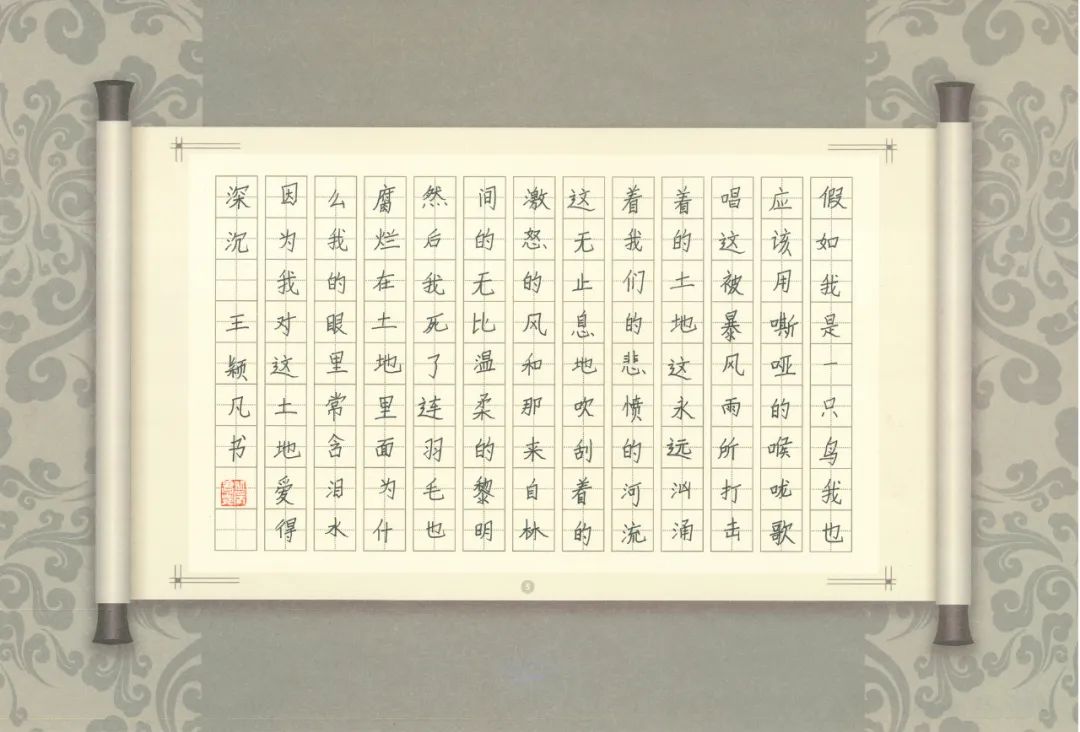 假如我是一只鸟我也
应该用嘶哑的喉咙歌
唱这被暴风雨所打击
着的土地这永远汹涌
着我们的悲愤的河流
这无止息地吹刮着的
激怒的风和那来自林
间的无比温柔的黎明
然后我死了连羽毛也
腐烂在土地里面为什
么我的眼里常含泪水
因为我对这土地爱得
深沉 王颖凡书
5